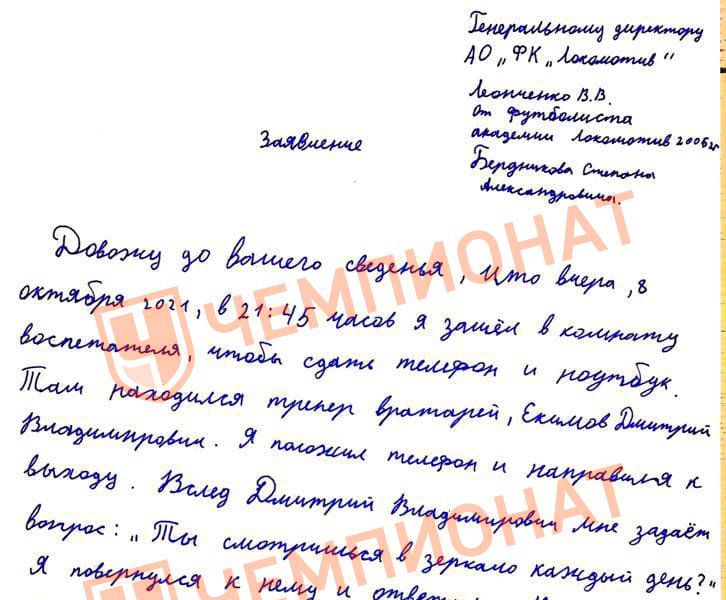 Генеральному директору
АО „ФК „Локомотив"
Леонченко В.В.
от футболиста
академии Локомотив 2006 гг
Бердникова Степана
Александровича.
Заявление
Довожу до вашего сведенья, что вчера, 8
октября 2021, в 21:45 часов я зашёл в комнату
воспетателя, чтобы сдать телефон и ноутбук.
Там находился тренер вратарей, Екимов Дмитрий
Владимирович. Я положил телефон и направился к
выходу. Вслед Дмитрий Владимирович мне задаёт
вопрос: „Ты смотришься в зеркало каждый день?"
Я повернулся к нему и ответил
ЧЕМПИОНАТ
ЧЕМПИОНАТ